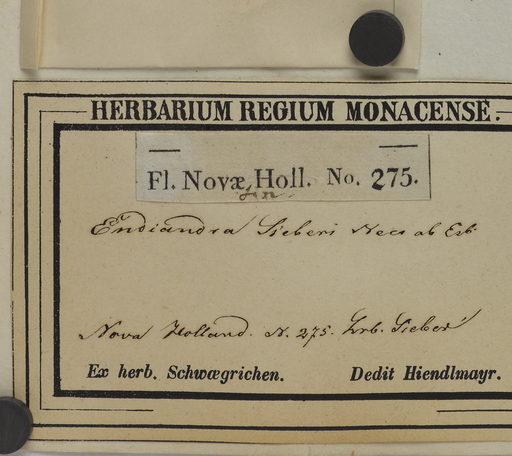 HERBARIUM REGIUM MONACENSE.
Fl. Novæ Holl. No. 275.
Endiandra Sieberi Nees ab Esb
Nova Holland. N. 275. Hrb. Sieber
Ex herb. Schwægrichen. Dedit Hiendlmayr.